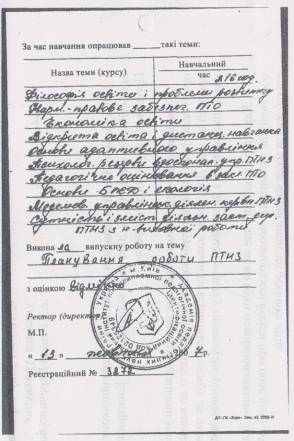 За час навчання опрацював такі теми:
Назва теми (курсу)
Навчальний
час 216 год.
Філософія освіти і проблеми розвитку
Норм.-правове забезпеч. ПТО
Економіка освіти
Відкрита освіта і дистанц. навчання
Основи адаптивного управління
Психолог. резерви упр ПТНЗ
Педагогічне оцінювання в ПТО
Основи БЖД і екологія
управлінс. діяльн. керів. ПТНЗ
Сутність і зміст діяльн. заст. дир.
ПТНЗ з н-виховної роботи
Викона ла випускну роботу на тему
Планування роботи ПТНЗ
з оцінкою відмінно
Ректор (директор)
М.П.
« 13 » 200 7р.
Реєстраційний № 3272